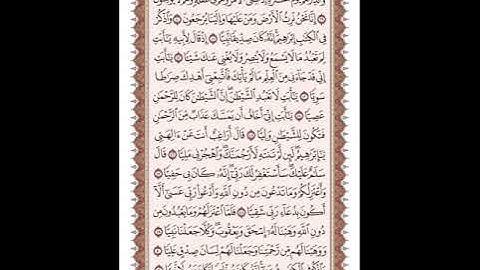 ۝ إِنَّا نَحْنُ نَرِثُ ٱلْأَرْضَ وَمَنْ عَلَيْهَا وَإِلَيْنَا يُرْجَعُونَ ۝ وَٱذْكُرْ
فِى ٱلْكِتَٰبِ إِبْرَٰهِيمَ إِنَّهُۥ كَانَ صِدِّيقًا نَّبِيًّا ۝ إِذْ قَالَ لِأَبِيهِ يَٰٓأَبَتِ
لِمَ تَعْبُدُ مَا لَا يَسْمَعُ وَلَا يُبْصِرُ وَلَا يُغْنِى عَنكَ شَيْـًٔا ۝ يَٰٓأَبَتِ
إِنِّى قَدْ جَآءَنِى مِنَ ٱلْعِلْمِ مَا لَمْ يَأْتِكَ فَٱتَّبِعْنِىٓ أَهْدِكَ صِرَٰطًا
سَوِيًّا ۝ يَٰٓأَبَتِ لَا تَعْبُدِ ٱلشَّيْطَٰنَ إِنَّ ٱلشَّيْطَٰنَ كَانَ لِلرَّحْمَٰنِ
عَصِيًّا ۝ يَٰٓأَبَتِ إِنِّىٓ أَخَافُ أَن يَمَسَّكَ عَذَابٌ مِّنَ ٱلرَّحْمَٰنِ
فَتَكُونَ لِلشَّيْطَٰنِ وَلِيًّا ۝ قَالَ أَرَاغِبٌ أَنتَ عَنْ ءَالِهَتِى
يَٰٓإِبْرَٰهِيمُ لَئِن لَّمْ تَنتَهِ لَأَرْجُمَنَّكَ وَٱهْجُرْنِى مَلِيًّا ۝ قَالَ
سَلَٰمٌ عَلَيْكَ سَأَسْتَغْفِرُ لَكَ رَبِّىٓ إِنَّهُۥ كَانَ بِى حَفِيًّا ۝
وَأَعْتَزِلُكُمْ وَمَا تَدْعُونَ مِن دُونِ ٱللَّهِ وَأَدْعُوا۟ رَبِّى عَسَىٰٓ أَلَّآ
أَكُونَ بِدُعَآءِ رَبِّى شَقِيًّا ۝ فَلَمَّا ٱعْتَزَلَهُمْ وَمَا يَعْبُدُونَ مِن
دُونِ ٱللَّهِ وَهَبْنَا لَهُۥٓ إِسْحَٰقَ وَيَعْقُوبَ وَكُلًّا جَعَلْنَا نَبِيًّا ۝
وَوَهَبْنَا لَهُم مِّن رَّحْمَتِنَا وَجَعَلْنَا لَهُمْ لِسَانَ صِدْقٍ عَلِيًّا ۝